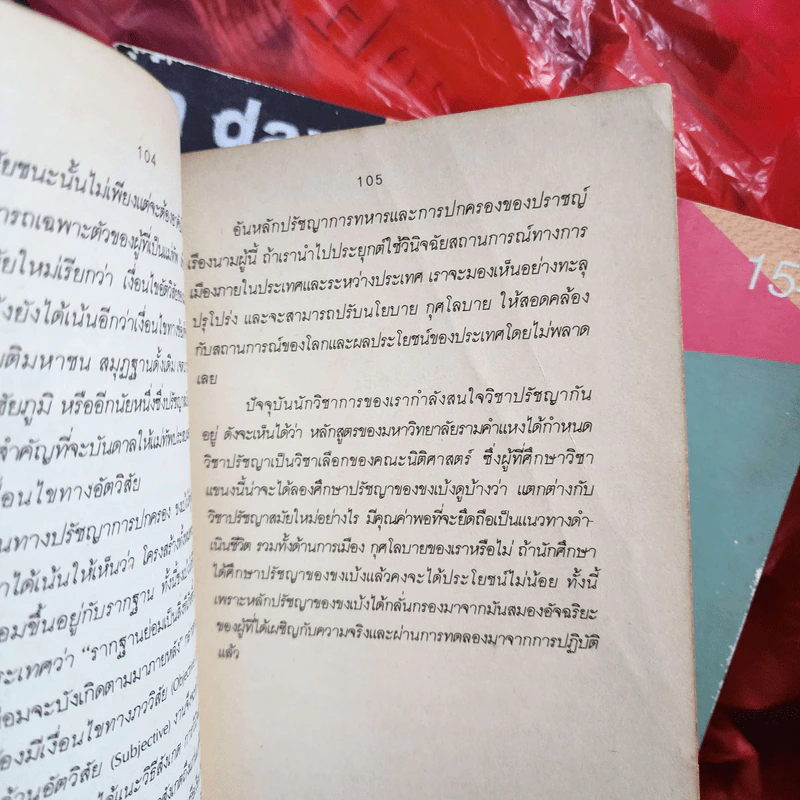 da
15
104
ยชนะนั้นไม่เพียงแต่จะต้อง
ารถเฉพาะตัวของผู้ที่เป็นแม่ทัพ
ัยใหม่เรียกว่า เงื่อนไขอัตวิสัย
ังยังได้เน้นอีกว่าเงื่อนไขทาง
ติมหาชน สมุฏฐานดั้งเดิม
ชัยภูมิ หรืออีกนัยหนึ่งซึ่งปรัชญา
สำคัญที่จะบันดาลให้แม่ทัพ
งื่อนไขทางอัตวิสัย
นทางปรัชญาการปกครอง
าได้เน้นให้เห็นว่า โครงสร้าง
อมขึ้นอยู่กับรากฐาน ทั้งนี้
ระเทศว่า "รากฐานย่อมเป็น
่อมจะบังเกิดตามมาภายหลัง"
้องมีเงื่อนไขทางภาววิสัย (Objective)
้านอัตวิสัย (Subjective)
ได้แนะวิธีสังเกต
105
อันหลักปรัชญาการทหารและการปกครองของปราชญ์
เรืองนามผู้นี้ ถ้าเรานำไปประยุกต์ใช้วินิจฉัยสถานการณ์ทางการ
เมืองภายในประเทศและระหว่างประเทศ เราจะมองเห็นอย่างทะลุ
ปรุโปร่ง และจะสามารถปรับนโยบาย กุศโลบาย ให้สอดคล้อง
กับสถานการณ์ของโลกและผลประโยชน์ของประเทศโดยไม่พลาด
เลย
ปัจจุบันนักวิชาการของเรากำลังสนใจวิชาปรัชญากัน
อยู่ ดังจะเห็นได้ว่า หลักสูตรของมหาวิทยาลัยรามคำแหงได้กำหนด
วิชาปรัชญาเป็นวิชาเลือกของคณะนิติศาสตร์ ซึ่งผู้ที่ศึกษาวิชา
แขนงนี้น่าจะได้ลองศึกษาปรัชญาของขงเบ้งดูบ้างว่า แตกต่างกับ
วิชาปรัชญาสมัยใหม่อย่างไร มีคุณค่าพอที่จะยึดถือเป็นแนวทางดำ-
เนินชีวิต รวมทั้งด้านการเมือง กุศโลบายของเราหรือไม่ ถ้านักศึกษา
ได้ศึกษาปรัชญาของขงเบ้งแล้วคงจะได้ประโยชน์ไม่น้อย ทั้งนี้
เพราะหลักปรัชญาของขงเบ้งได้กลั่นกรองมาจากมันสมองอัจฉริยะ
ของผู้ที่ได้เผชิญกับความจริงและผ่านการทดลองมาจากการปฏิบัติ
แล้ว